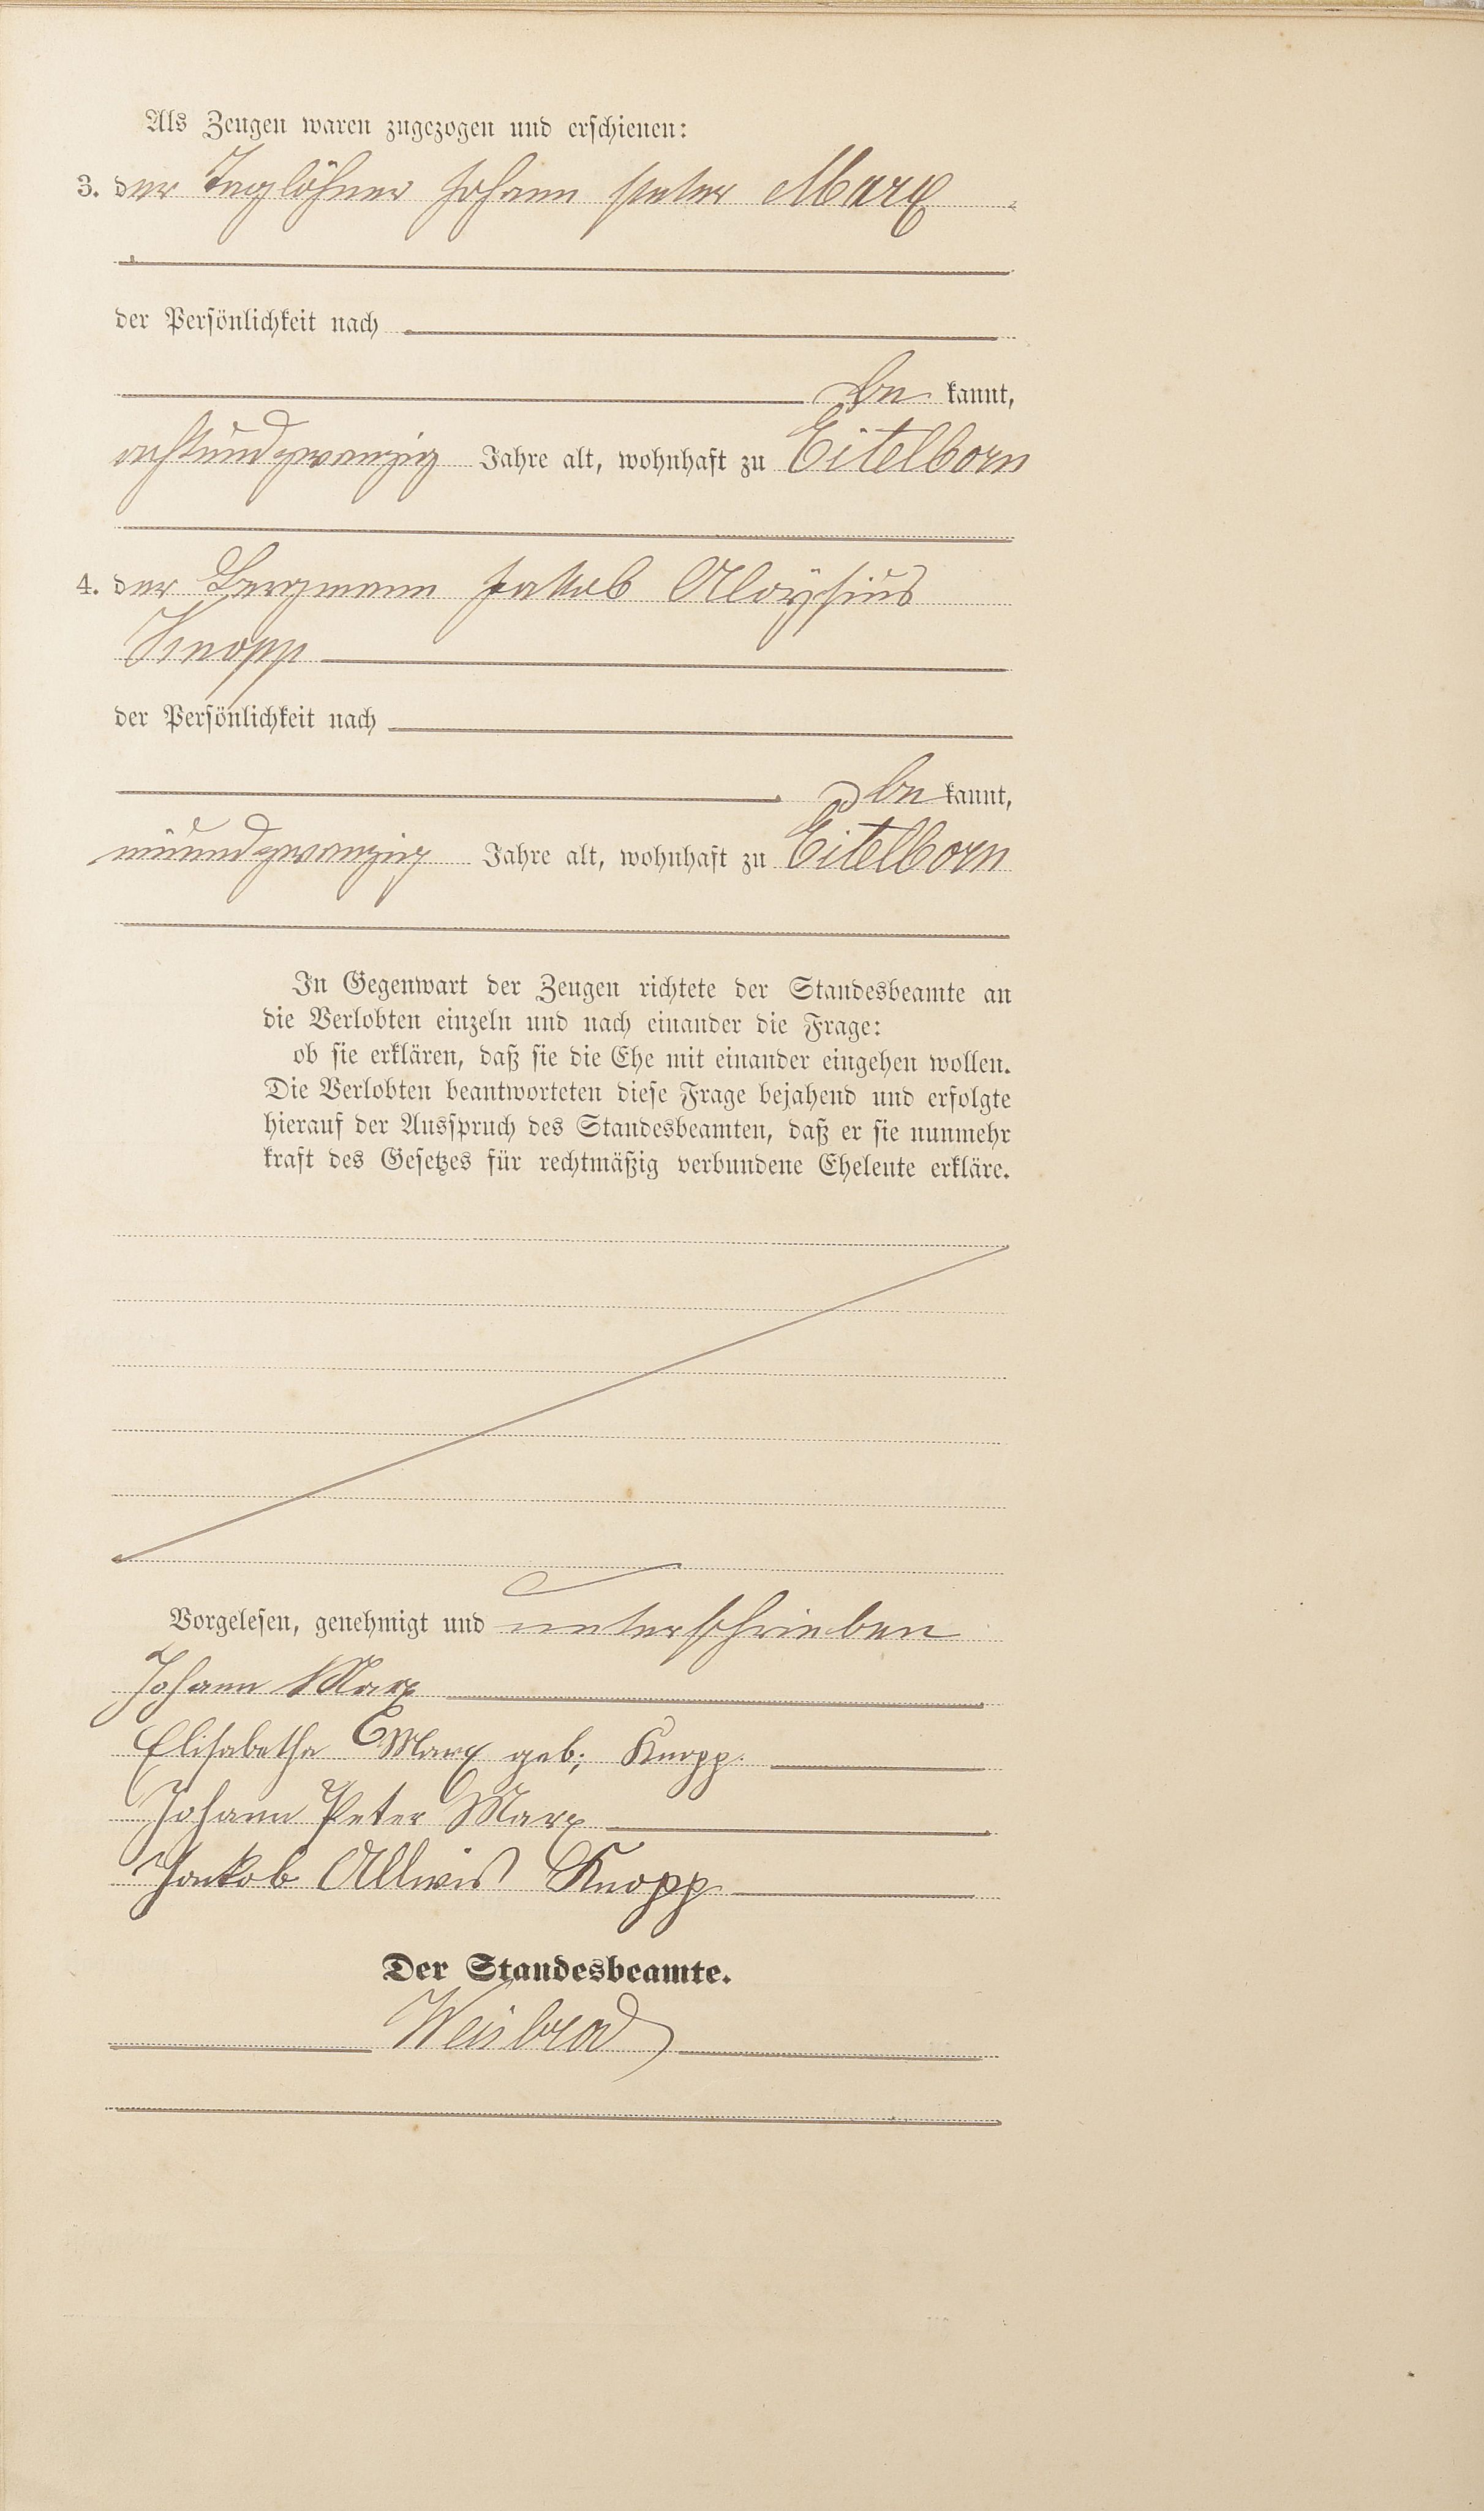 Als Zeugen waren zugezogen und erschienen:
3. der Taglöhner Johann Peter Marx
der Persönlichkeit nach
be kannt,
achtundzwanzig Jahre alt, wohnhaft zu Eitelborn
4. der Bergmann Jakob Aloysius
Knopp
der Persönlichkeit nach
be kannt,
neunundzwanzig Jahre alt, wohnhaft zu Eitelborn
In Gegenwart der Zeugen richtete der Standesbeamte an
die Verlobten einzeln und nach einander die Frage:
ob sie erklären, daß sie die Ehe mit einander eingehen wollen.
Die Verlobten beantworteten diese Frage bejahend und erfolgte
hierauf der Ausspruch des Standesbeamten, daß er sie nunmehr
kraft des Gesetzes für rechtmäßig verbundene Eheleute erkläre.
Vorgelesen, genehmigt und unterschrieben
Johann Marx
Elisabetha Marx geb; Knopp.
Johann Peter Marx
Jakob Knopp
Der Standesbeamte.
Weisbrod